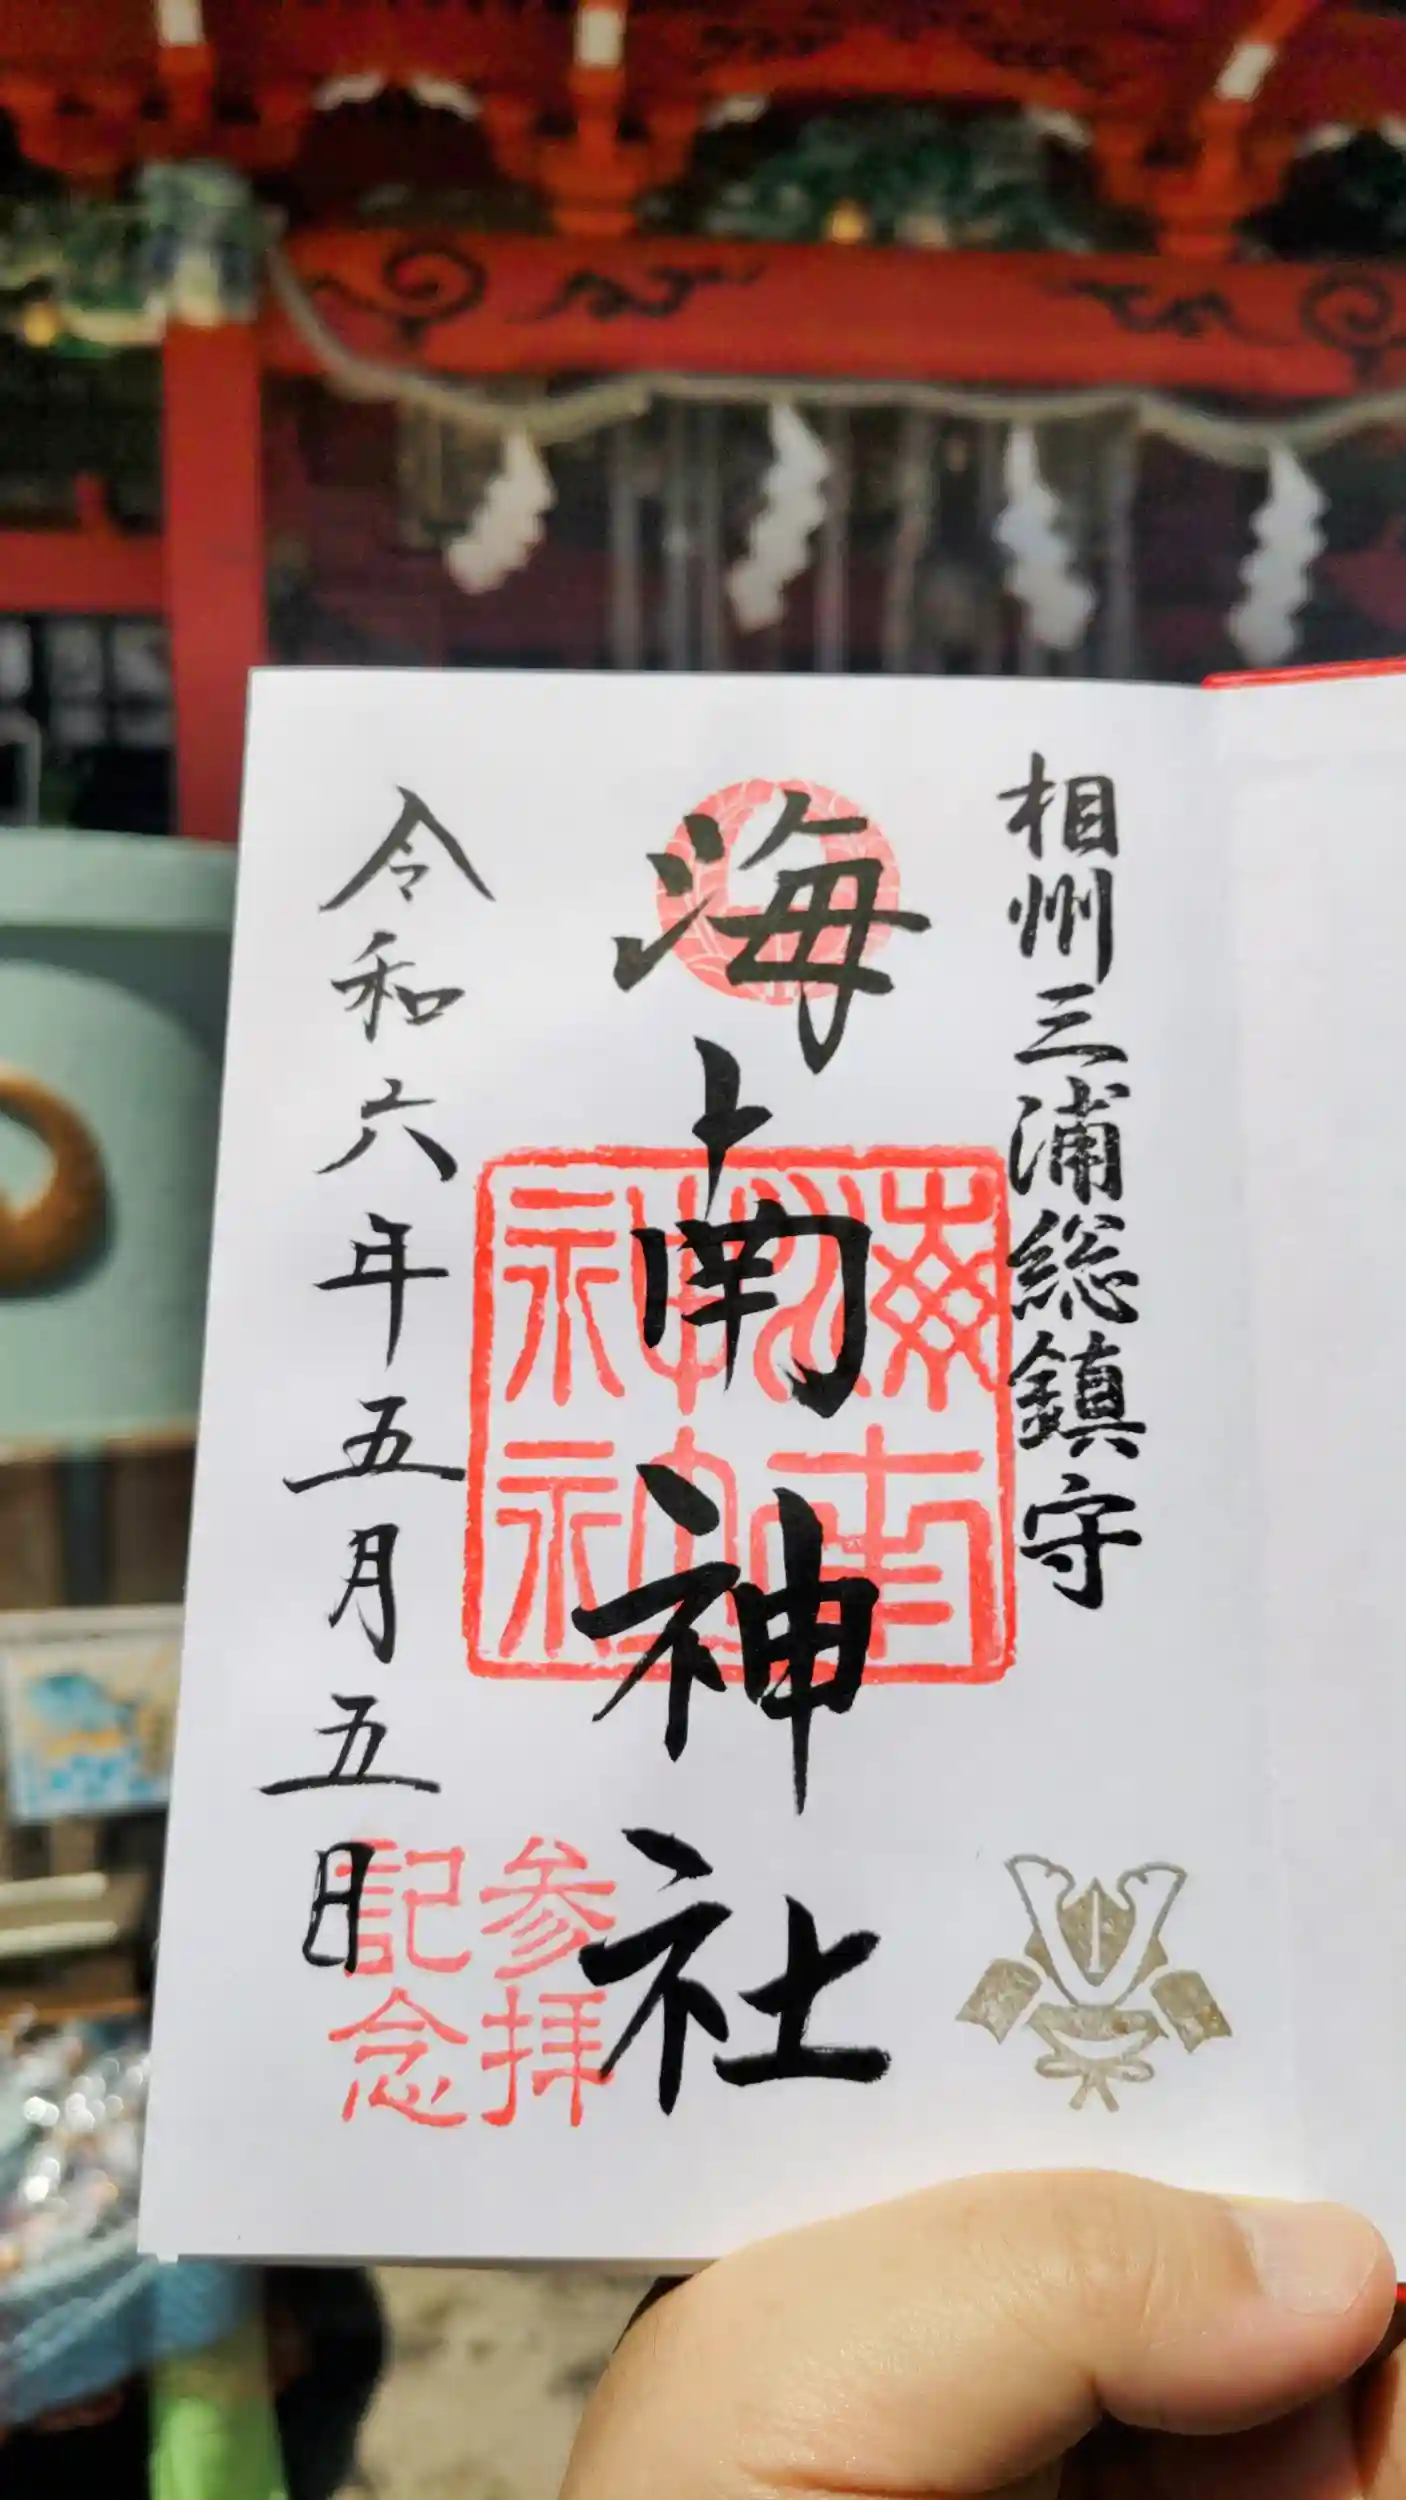 相州三浦総鎮守
海南神社
海南神社
参拝
記念
令和六年五月五日